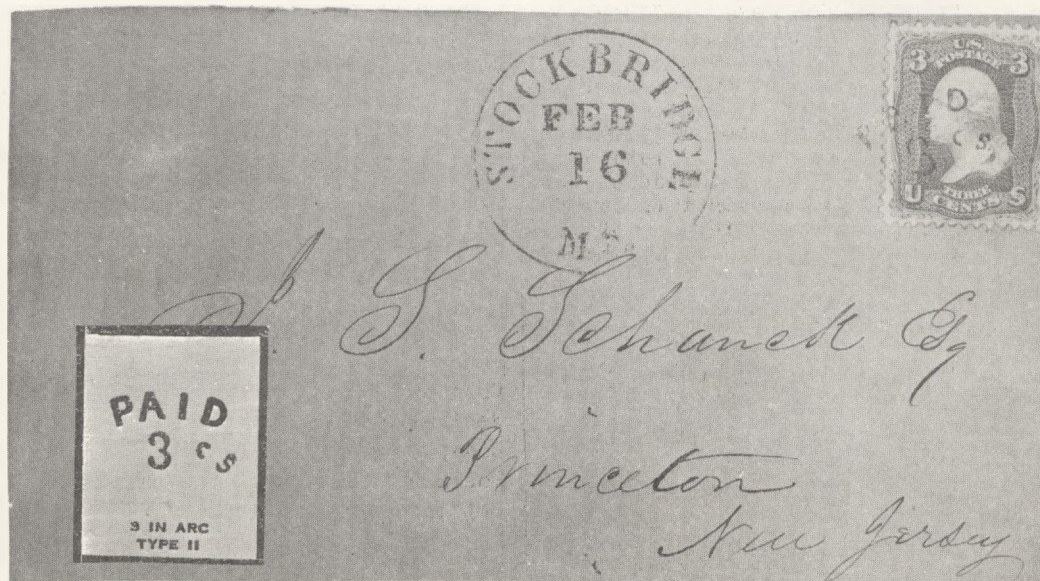 STOCKBRIDGE
FEB
16
U.S.
POSTAGE
3 3
D
3 cs
U THREE S
CENTS
J S. Schanck Esq
Princeton
New Jersey
PAID
3 cs
3 IN ARC
TYPE II